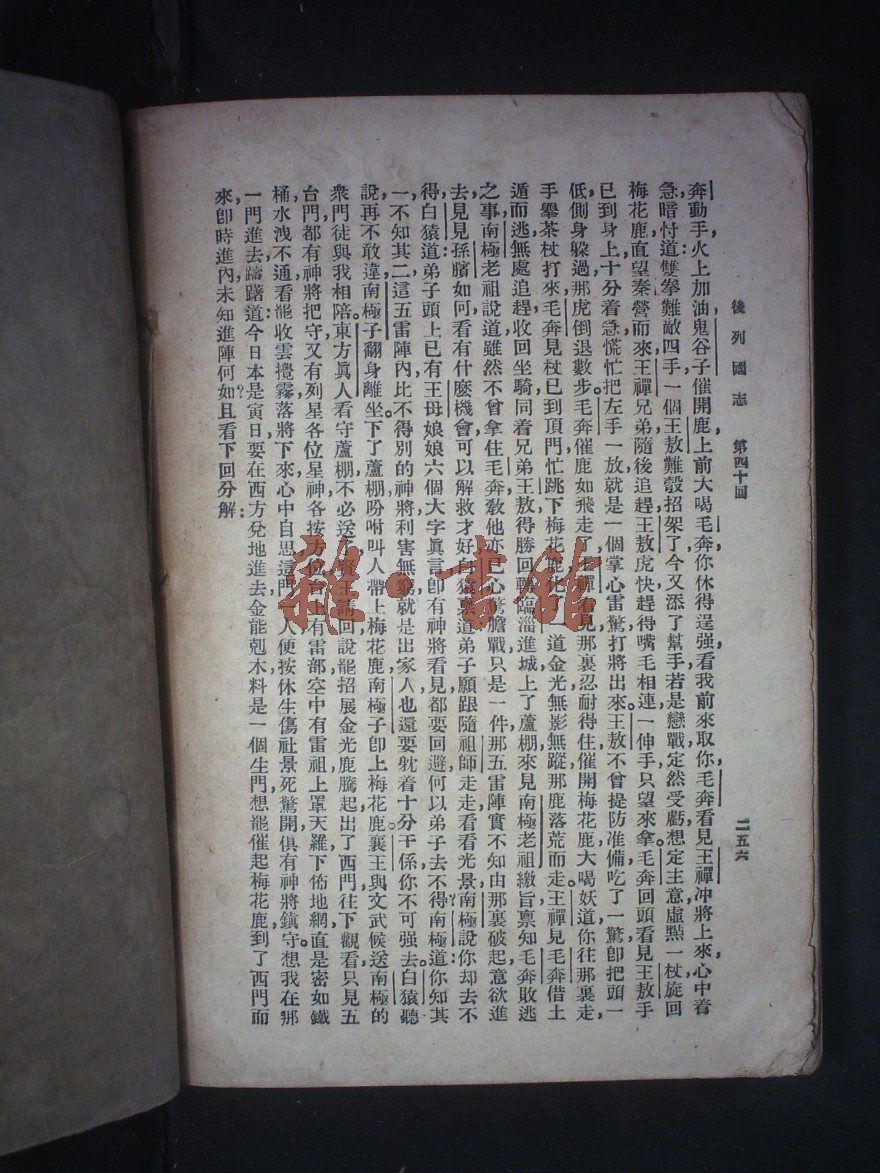 後列國志　第四十回　二五六
奔動手火上加油鬼谷子催開鹿上前大喝毛奔你休得逞强看我前來取你毛奔看見王禪冲將上來心中着
急暗忖道雙拳難敵四手一個王敖難彀招架了今又添了幫手若是戀戰定然受虧想定主意虛㸃一杖旋回
梅花鹿直望秦營而來王禪兄弟隨後追趕王敖虎快趕得嘴毛相連一伸手只望來拿毛奔回頭看見王敖手
已到身上十分着急慌忙把左手一放就是一個掌心雷驚打將出來王敖不曾提防准備吃了一驚卽把頭一
低側身躲過那虎倒退數步毛奔催鹿如飛走了王禪看見那裏忍耐得住催開梅花鹿大喝妖道你往那裏走
手舉茶杖打來毛奔見杖已到頂門忙跳下梅花鹿化了一道金光無影無蹤那鹿落荒而走王禪見毛奔借土
遁而逃無處追趕收回坐騎同着兄弟王敖得勝回轉臨淄進城上了蘆棚來見南極老祖繳旨稟知毛奔敗逃
之事南極老祖說道雖然不曾拿住毛奔敎他亦已心驚膽戰只是一件那五雷陣實不知由那裏破起意欲進
去見見孫臏如何看有什麽機會可以解救才好白猿稟道弟子願跟隨祖師走走看看光景南極說你却去不
得白猿道弟子頭上已有王母娘娘六個大字眞言卽有神將看見都要回避何以弟子去不得南極道你知其
一不知其二這五雷陣內比不得別的神將利害無窮就是出家人也還要躭着十分干係你不可强去白猿聽
說再不敢違南極子翻身離坐下了蘆棚吩咐叫人帶上梅花鹿南極子卽上梅花鹿襄王與文武候送南極的
衆門徒與我相陪東方眞人看守蘆棚不必送賢王請回說罷招展金光鹿騰起出了西門往下觀看只見五
台門都有神將把守又有列星各位星神各按方位台上有雷部空中有雷祖上罩天羅下佈地網直是密如鐵
桶水洩不通看罷收雲攪霧落將下來心中自思這門一人便按休生傷社景死驚開俱有神將鎮守想我在那
一門進去躊躇道今日本是寅日要在西方兌地進去金能剋木料是一個生門想罷催起梅花鹿到了西門而
來卽時進內未知進陣何如且看下回分解
雜·書館